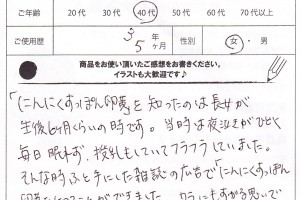 ご年齢 20代 30代 40代 50代 60代 70代以上
ご使用歴 5年 3ヶ月 性別 女・男
商品をお使い頂いたご感想をお書きください。
イラストも大歓迎です♪
「にんにくすっぽん卵黄」を知ったのは長女が
生後6ヶ月くらいの時です。当時は夜泣きがひどく
毎日眠れず、授乳もしていてフラフラしていました。
そんな時ふと手にした雑誌の広告で「にんにくすっぽん